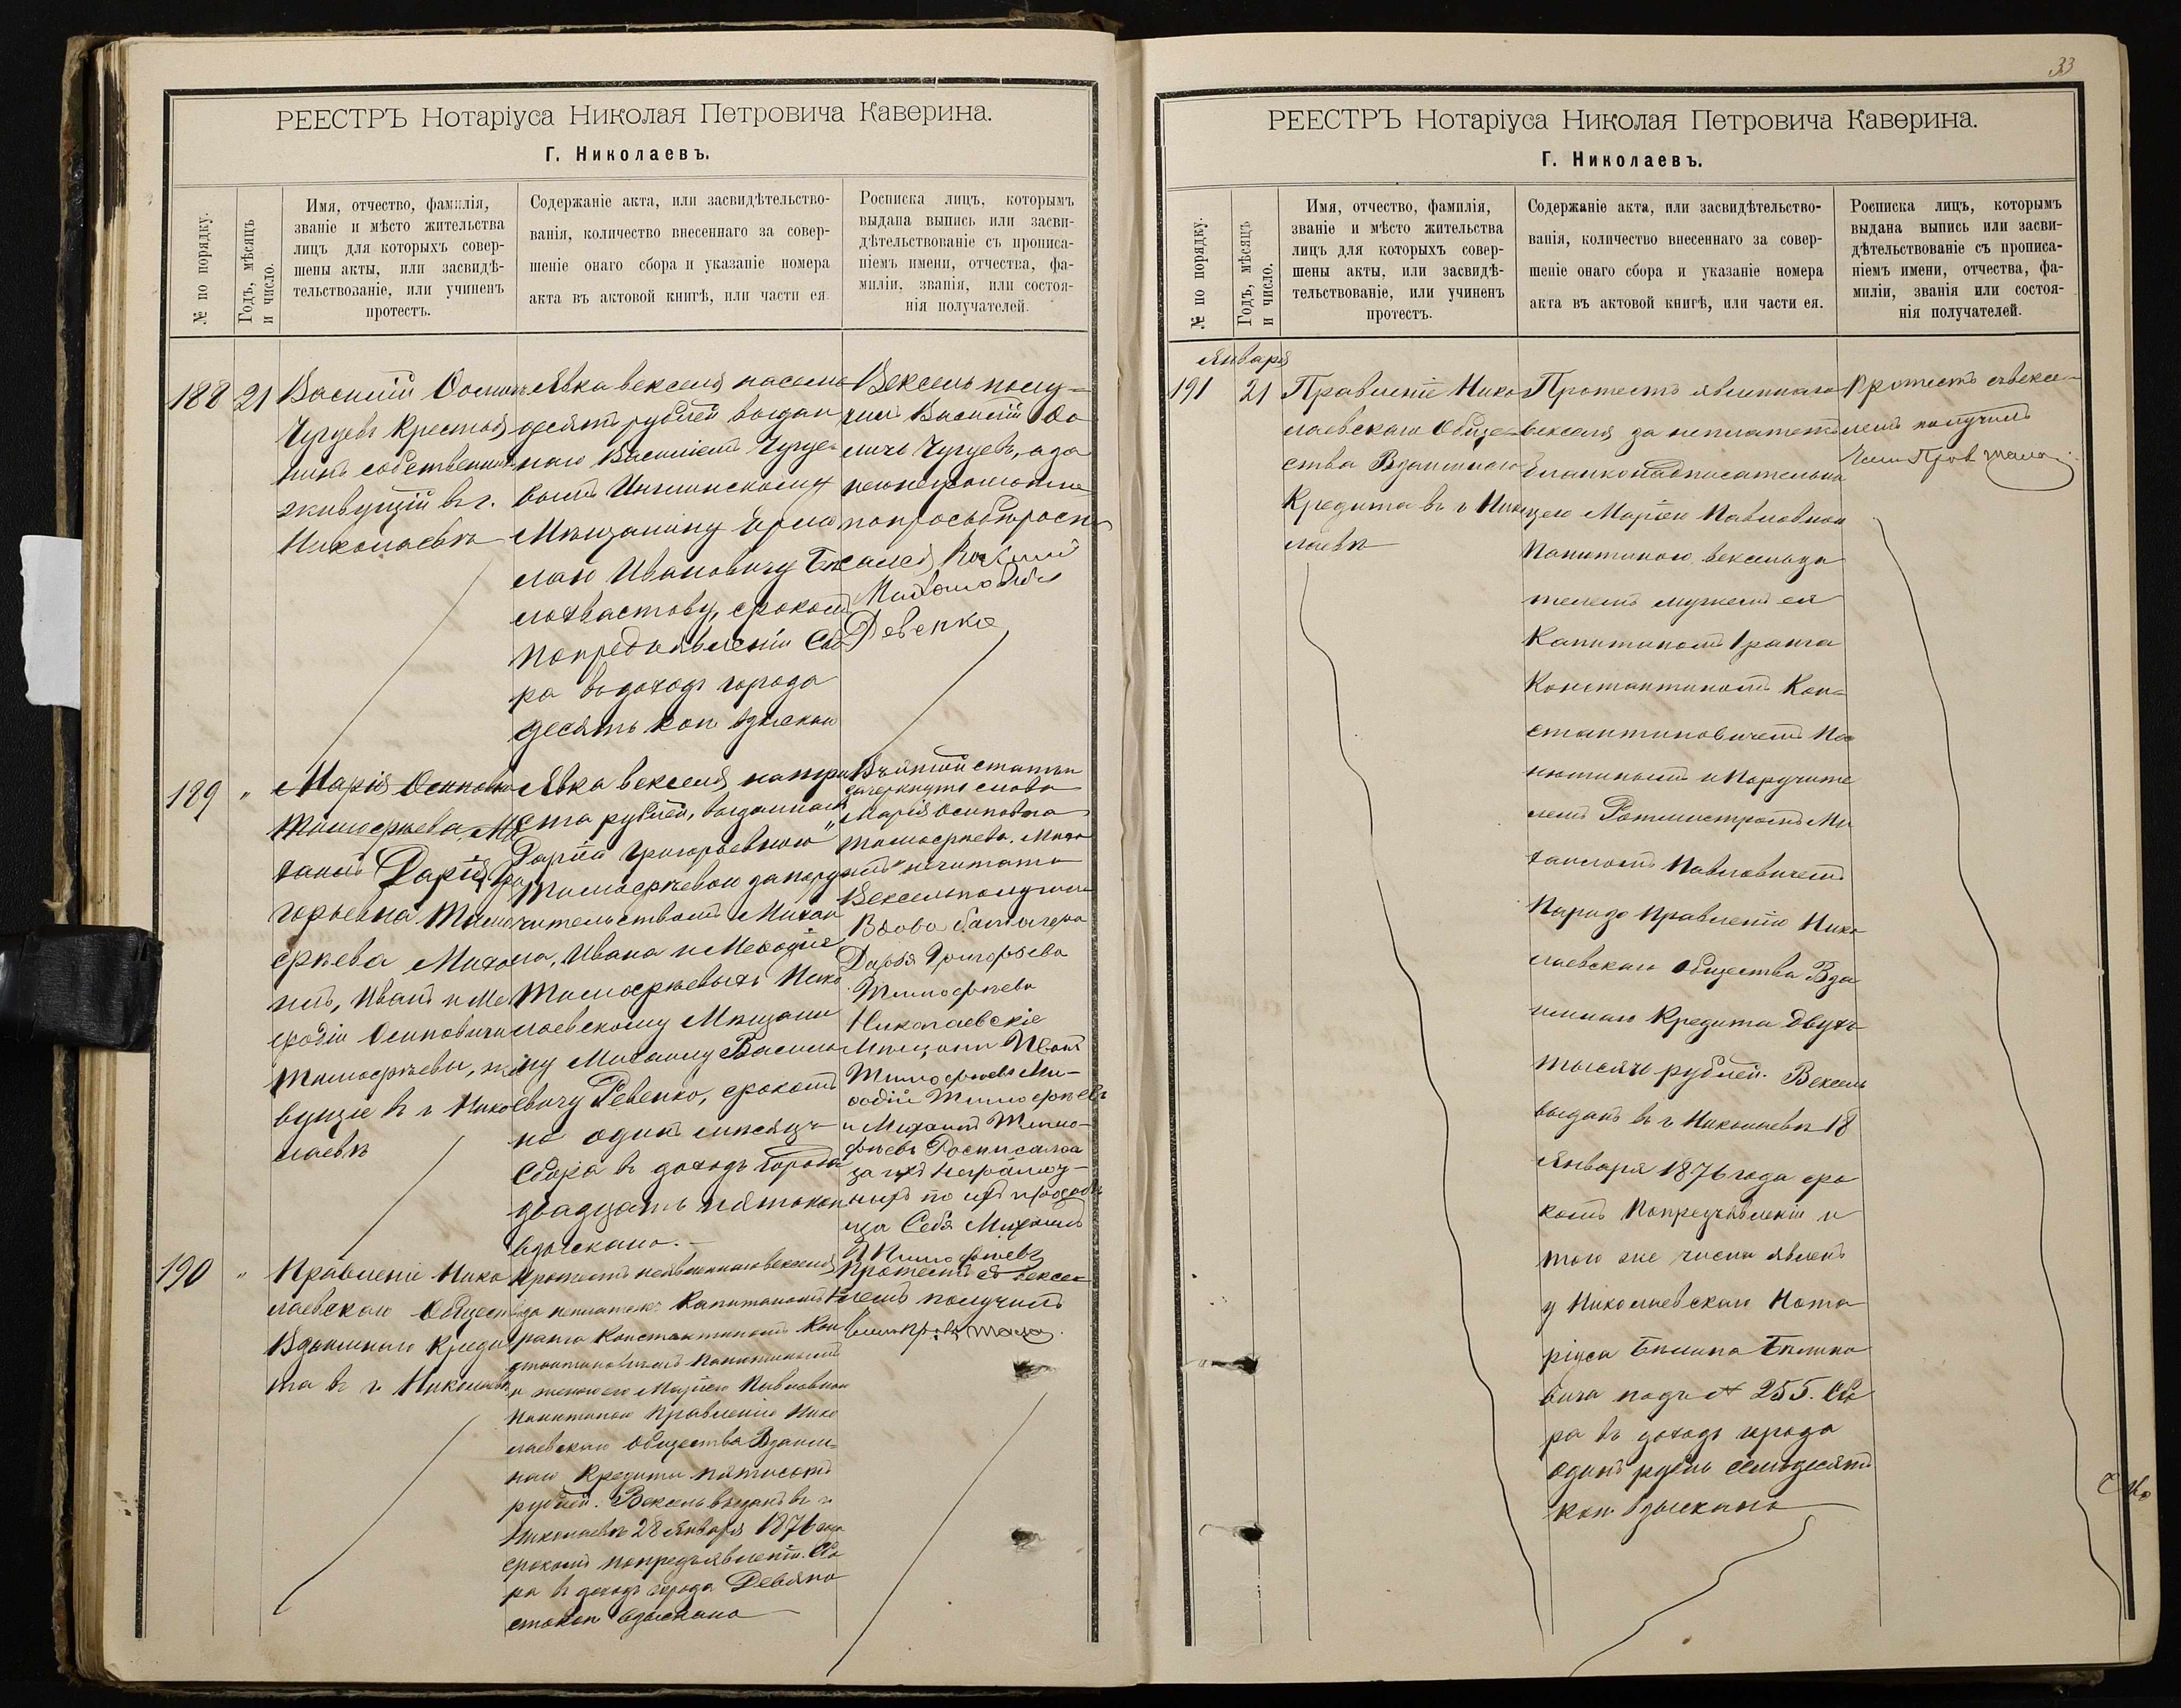 РЕЕСТРЪ Нотаріуса Николая Петровича Каверина.
Г. Николаевъ.
№ по порядку.
Годъ, мѣсяцъ
и число.
Имя, отчество, фамилія,
званіе и мѣсто жительства
лицъ для которыхъ совер-
шены акты, или засвидѣ-
тельствованіе, или учиненъ
протестъ.
Содержаніе акта, или засвидѣтельство-
ванія, количество внесеннаго за совер-
шеніе онаго сбора и указаніе номера
акта въ актовой книгѣ, или части ея.
Росписка лицъ, которымъ
выдана выпись или засви-
дѣтельствованіе съ прописа-
ніемъ имени, отчества, фа-
миліи, званія, или состоя-
нія получателей.
188
21
Василій
Чугуевъ Крестья
нинъ собственникъ
живущій въ г.
Николаевѣ
Явка векселя на семь
десятъ рублей выдан
наго Василіемъ Чугуе-
вымъ
Мѣщанину Ермо
лаю Ивановичу Бѣ
лохвастову, срокомъ
по предъявленіи Сбо
ра въ доходъ города
десять коп взыскано
Вексель полу-
чилъ Василій
Чугуевъ, а за
по просьбѣ роспи
сался
Ревенко
189
"
Марія Осиповна
Тимофѣева, Ми
хаилъ Дарія Гри
горьевна Тимо
фѣева Миха
илъ, Иванъ и Ме
фодій Осиповичи
Тимофѣевы, жи
вущіе въ г Нико
лаевѣ
Явка векселя на три
ста рублей, выданнаго
Даріей Григорьевною
Тимофѣевою за пору
чительствомъ Михаи
ла, Ивана и Мефодія
Тимофѣевыхъ Нико
лаевскому Мѣщани
ну Михаилу Василь
евичу Ревенко, срокомъ
на одинъ мѣсяцъ
Сбора въ доходъ города
двадцать пять коп
взыскано.
Въ этой статьи
зачеркнуто слова
Марія Осиповна
Тимофѣева. Миха
илъ" не читать
Вексель получили
Вдова
Дарья Григорьева
Тимофѣева
Николаевскіе
Мѣщани Иванъ
Тимофѣевъ Ме-
фодій Тимофѣевъ
и Михаилъ Тимо-
фѣевъ Росписался
за ихъ неграмот-
ныхъ по ихъ прозьбѣ
и за Себя Михаилъ
Тимофѣевъ
190
"
Правленіе Нико
лаевскаго Общества
Взаимнаго Креди
та въ г. Николаевѣ
Протестъ неявленнаго векселя
за неплатежъ Капитаномъ 1
ранга Константиномъ Кон
стантиновичемъ
и женою его Маріею Павловною
Правленію Нико
лаевскаго Общества Взаим-
наго Кредита пятисотъ
рублей. Вексель выданъ въ г.
Николаевѣ 28 Января 1876 года
срокомъ по предъявленіи. Сбо
ра въ доходъ города Девяно
сто коп взыскано
Протестъ съ вексе-
лемъ получилъ
РЕЕСТРЪ Нотаріуса Николая Петровича Каверина.
Г. Николаевъ.
33
№ по порядку.
Годъ, мѣсяцъ
и число.
Имя, отчество, фамилія,
званіе и мѣсто жительства
лицъ для которыхъ совер-
шены акты, или засвидѣ-
тельствованіе, или учиненъ
протестъ.
Содержаніе акта, или засвидѣтельство-
ванія, количество внесеннаго за совер-
шеніе онаго сбора и указаніе номера
акта въ актовой книгѣ, или части ея.
Росписка лицъ, которымъ
выдана выпись или засви-
дѣтельствованіе съ прописа-
ніемъ имени, отчества, фа-
миліи, званія или состоя-
нія получателей.
Января
191
21
Правленіе Нико
лаевскаго Обще-
ства Взаимнаго
Кредита въ г Нико
лаевѣ
Протестъ явленнаго
векселя за неплатежъ
бланконадписательни
цею Маріею Павловною
векселеда
телемъ мужемъ ея
Капитаномъ 1 ранга
Константиномъ Кон-
стантиновичемъ
и Поручите
лемъ Ротмистромъ Ми
хаиломъ Павловичемъ
Правленію Нико
лаевскаго Общества Вза
имнаго Кредита двухъ
тысячъ рублей. Вексель
выданъ въ г Николаевѣ 18
Января 1876 года сро
комъ по предъявленіи и
того же числа явленъ
у Николаевскаго Нота
ріуса
подъ № 255. Сбо
ра въ доходъ города
одинъ рубль семьдесятъ
коп взыскано
Протестъ съ вексе-
лемъ получилъ